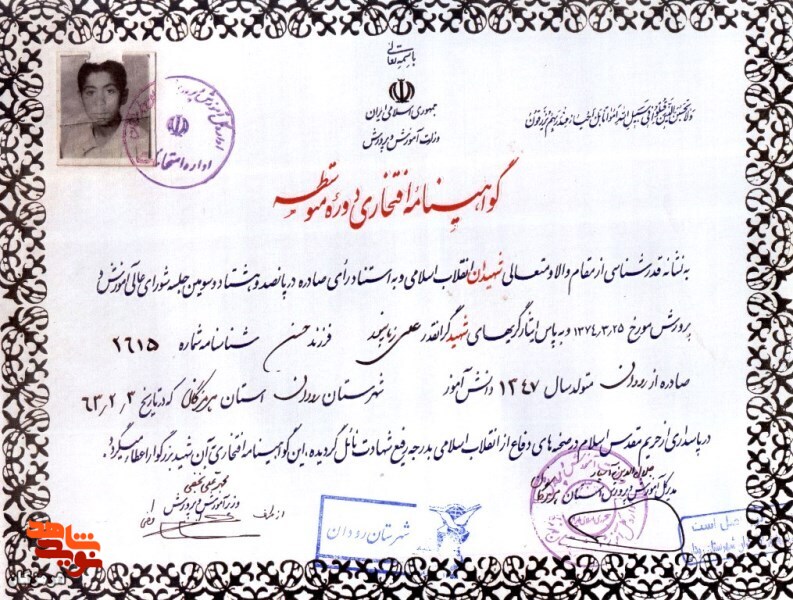 باسمه تعالی
جمهوری اسلامی ایران
وزارت آموزش و پرورش
گواهینامه افتخاری دوره متوسطه
به نشانه قدرشناسی از مقام والا و متعالی شهیدان انقلاب اسلامی و به استناد رأی صادره در پانصد و هشتاد و سومین جلسه شورای عالی آموزش و
پرورش مورخ ۱۳۷۴،۳،۲۵ و به پاس ایثارگریهای شهید گرانقدر فرزند حسن شناسنامه شماره ۲۶۱۵
صادره از رودان متولد سال ۱۳۴۷ دانش آموز شهرستان رودان استان هرمزگان که در تاریخ ۶۳،۲،۳
در پاسداری از حریم مقدس اسلام در صحنه های دفاع از انقلاب اسلامی به درجه رفیع شهادت نائل گردیده، این گواهینامه افتخاری آن شهید بزرگوار اعطا میگردد.
مدیرکل آموزش و پرورش استان هرمزگان
محمد علی نجفی
وزیر آموزش و پرورش
از طرف
اداره امتحانات
شهرستان رودان
نوید شاهد